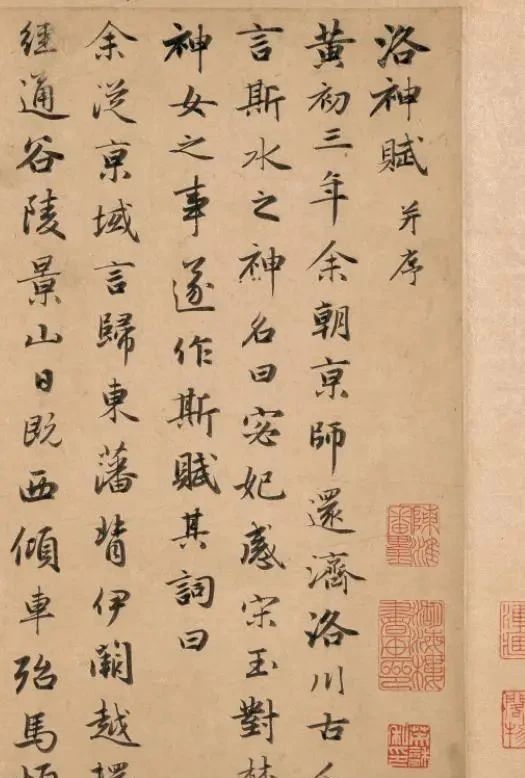 洛神賦 并序
黄初三年余朝京師還濟洛川古
言斯水之神名曰宓妃感宋玉對
神女之事遂作斯賦其詞曰
余從京域言歸東藩背伊闕越
經通谷陵景山日既西傾車殆馬